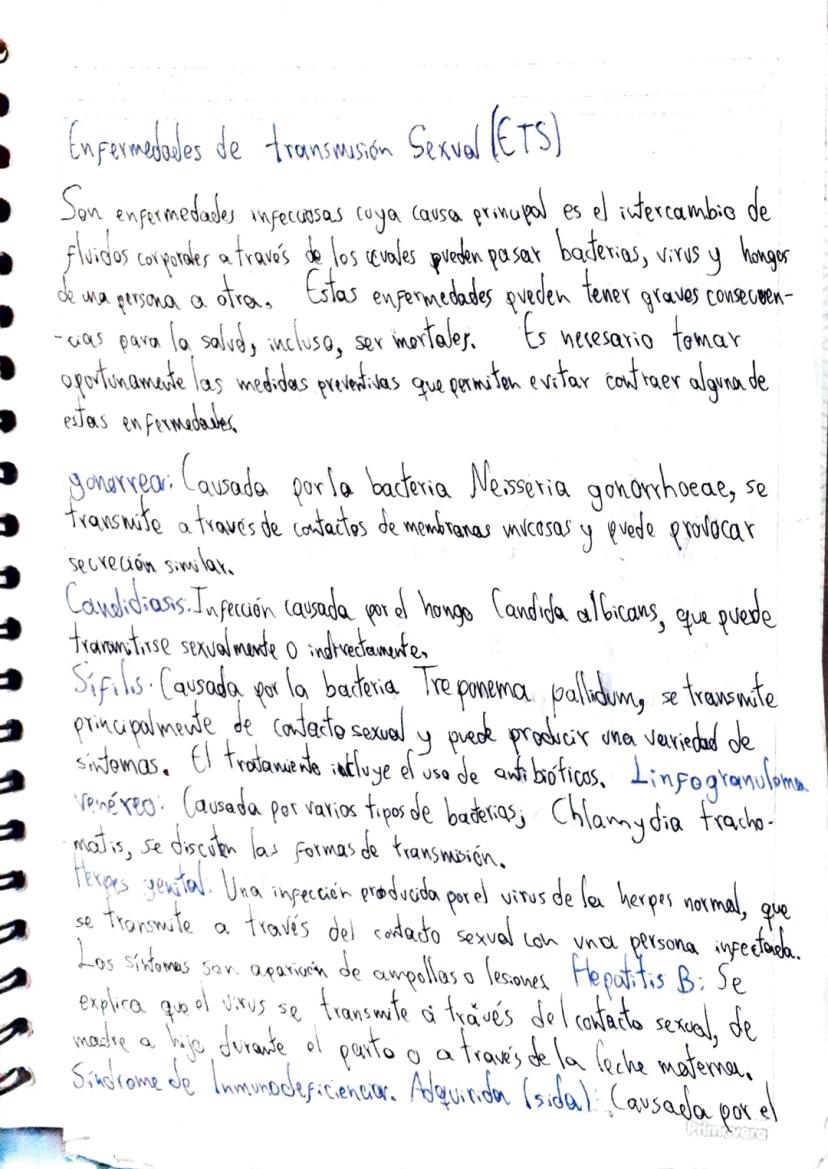 Enfermedades de transmisión Sexual (ETS)
Son enfermedades infecciosas cuya causa principal es el intercambio de
fluidos corporales a través de los cuales pueden pasar bacterias, virus y hongos
de una persona a otra. Estas enfermedades pueden tener graves consecuen-
-cias para la salud, incluso, ser mortales. Es necesario tomar
oportunamente las medidas preventivas que permiten evitar contraer alguna de
estas enfermedades.
gonorrea: Causada por la bacteria Neisseria gonorrhoeae, se
transmite a través de contactos de membranas mucosas y puede provocar
secreción similar.
Candidiasis. Infección causada por el hongo Candida albicans, que puede
transmitirse sexualmente o indirectamente.
Sífilis. Causada por la bacteria Treponema pallidum, se transmite
principalmente de contacto sexual y puede producir una variedad de
síntomas. El tratamiento incluye el uso de antibióticos. Linfogranuloma
venéreo: Causada por varios tipos de bacterias; Chlamydia tracho-
matis, se discuten las formas de transmisión.
Herpes genital. Una infección producida por el virus de la herpes normal, que
se transmite a través del contacto sexual con una persona infectada.
Los síntomas son aparición de ampollas o lesiones Hepatitis B: Se
explica que el virus se transmite a través del contacto sexual, de
madre a hijo durante el parto o a través de la leche materna.
Síndrome de Inmunodeficiencia. Adquirida (sida): Causada por el
Primavera